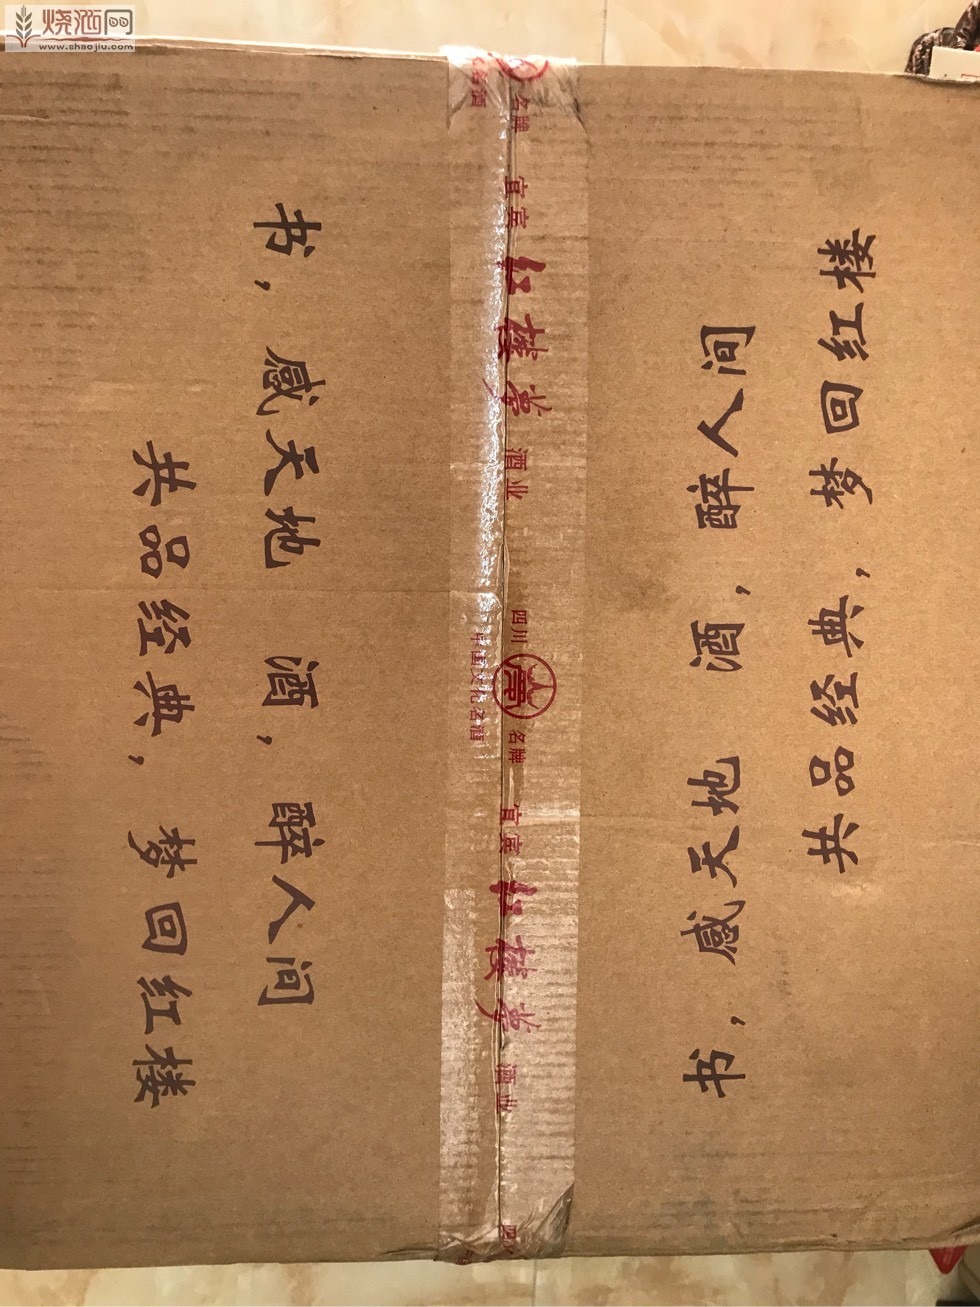 烧酒网
www.shaojiu.com
书，感天地 酒，醉人间
共品经典，梦回红楼
名酒
名牌
宜宾红楼梦酒业
四川名牌
中国文化名酒
宜宾红楼梦酒业
四川
书，感天地 酒，醉人间
共品经典，梦回红楼